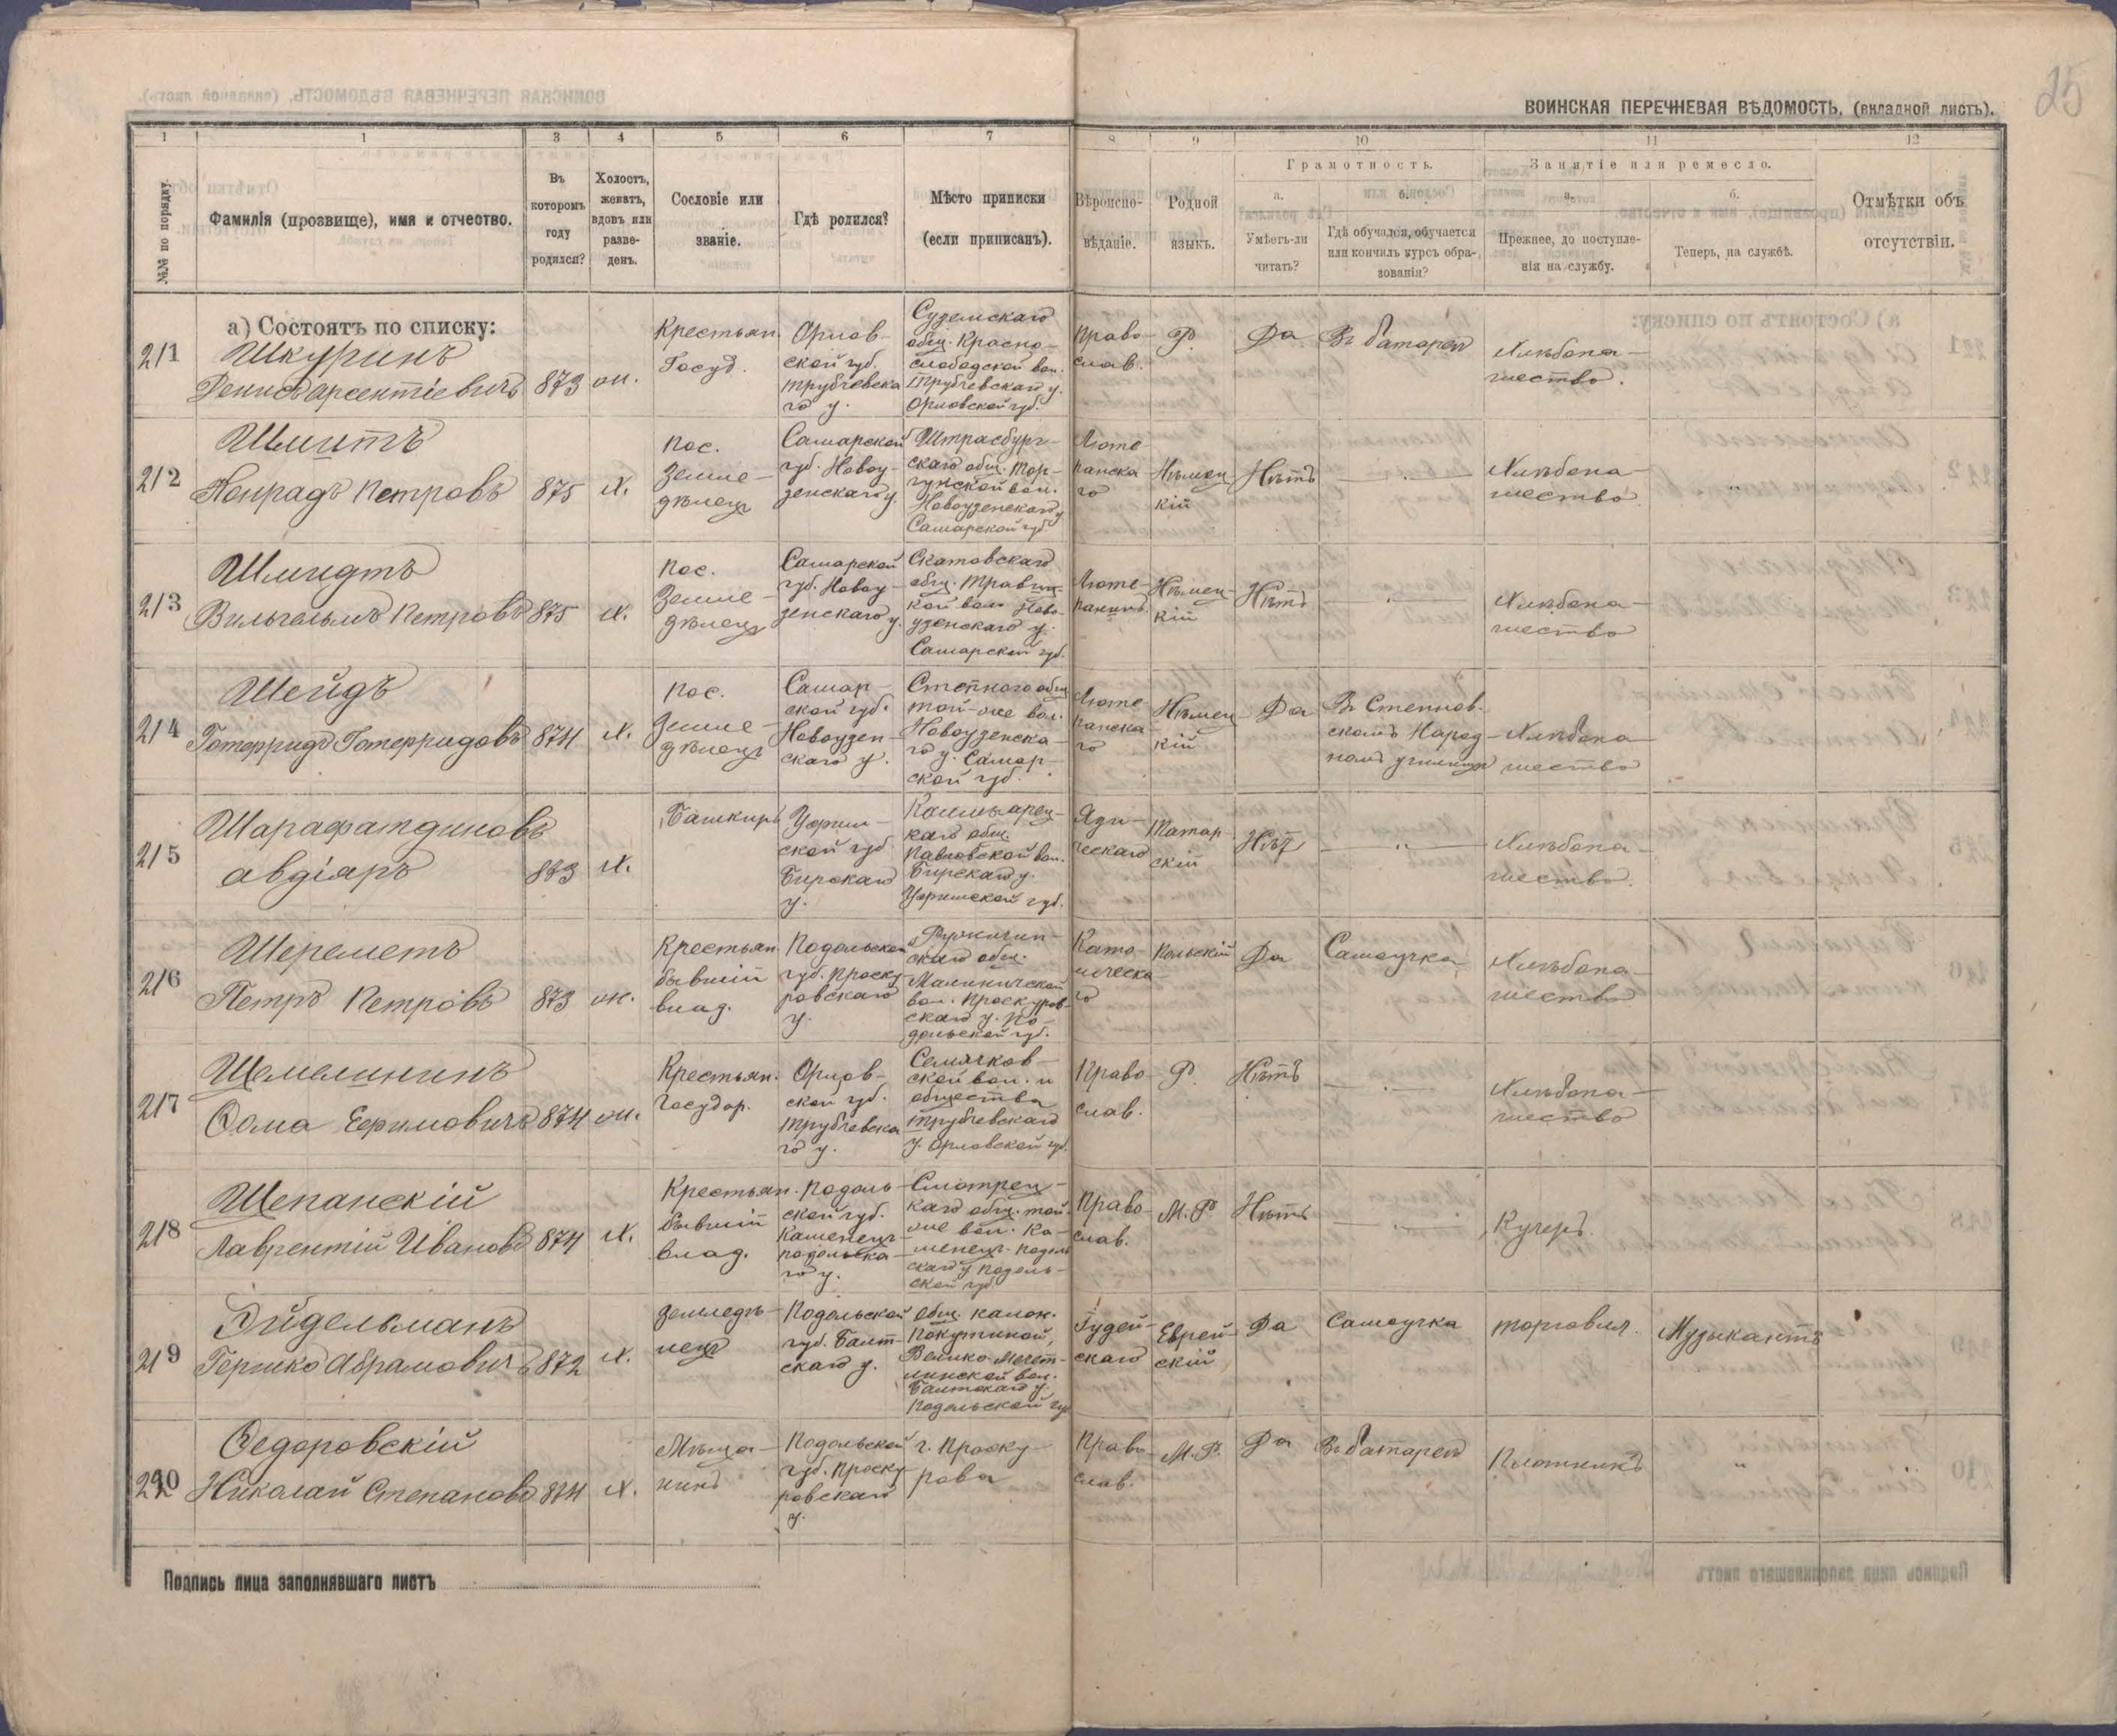 25
ВОИНСКАЯ ПЕРЕЧНЕВАЯ ВѢДОМОСТЬ, (вкладной листъ).
1 1 3 4 5 6 7 8 9 10 11 12
№№ по порядку.
Фамилія (прозвище), имя и отчество.
Въ которомъ году родился?
Холостъ, женатъ, вдовъ или разведенъ.
Сословіе или званіе.
Гдѣ родился?
Мѣсто приписки (если приписанъ).
Вѣроисповѣданіе.
Родной языкъ.
Грамотность.
а. Умѣетъ-ли читать?
б. Гдѣ обучался, обучается или кончилъ курсъ образованія?
Занятіе или ремесло.
а. Прежнее, до поступленія на службу.
б. Теперь, на службѣ.
Отмѣтки объ отсутствіи.
а) Состоятъ по списку:
211
Шкуринъ
Денисъ Арсентіевичъ
873
ж.
Крестьян.
Госуд.
Орлов-
ской губ.
Трубчевска
го у.
Суземскаго
общ. Красно-
слободской вол.
Трубчевскаго у.
Орловской губ.
Право-
слав.
Р.
Да
Въ батареи
Хлѣбопа-
шество.
212
Шмитъ
Конрадъ Петровъ
875
х.
пос.
Земле-
дѣлецъ
Самарской
губ. Новоу-
зенскаго у.
Штрасбург-
скаго общ. Тор-
гунской вол.
Новоузенскаго у
Самарской губ.
Люте-
ранска
го
Нѣмец-
кій
Нѣтъ
— " —
Хлѣбопа-
шество
"
213
Шмидтъ
Вильгельмъ Петровъ
875
х.
пос.
Земле-
дѣлецъ
Самарской
губ. Новоу-
зенскаго у.
Скатовскаго
общ.
кой вол. Ново-
узенскаго у.
Самарской губ.
Люте-
ранинъ.
Нѣмец-
кій
Нѣтъ
— " —
Хлѣбопа-
шество
214
Шейдъ
Готфридъ Готфридовъ
874
х.
пос.
Земле-
дѣлецъ
Самар-
ской губ.
Новоузен-
скаго у.
Степного общ
той-же вол.
Новоузенска-
го у. Самар-
ской губ.
Люте
ранска-
го
Нѣмец-
кій
Да
Въ Степнов-
скомъ Народ-
номъ училищѣ
Хлѣбопа-
шество
215
Шарафатдиновъ
Авдіяръ
873
х.
Башкиръ
Уфим-
ской губ
Бирскаго
у.
каго общ.
Павловской вол.
Бирскаго у.
Уфимской губ.
Татар-
скій
Нѣтъ
— " —
Хлѣбопа-
шество.
216
Шереметъ
Петръ Петровъ
873
ж.
Крестьян.
бывшій
влад.
Подольской
губ. Проску-
ровскаго
у.
скаго общ.
Малиничской
вол. Проскуров-
скаго у. По-
дольской губ.
Като-
лическа-
го
Польскій
Да
Самоучка
Хлѣбопа-
шество
217
Щемелининъ
Ѳома Ефимовичъ
874
ж.
Крестьян.
Государ.
Орлов-
ской губ.
Трубчевска
го у.
Семячков-
ской вол. и
общества
Трубчевскаго
у. Орловской губ.
Право-
слав.
Р.
Нѣтъ
— " —
Хлѣбопа-
шество
218
Щепанскій
Лаврентій Ивановъ
874
х.
Крестьян.
бывшій
влад.
Подоль-
ской губ.
Каменецъ-
подольска-
го у.
Смотрец-
каго общ. той-
же вол. Ка-
менецъ-Подоль
скаго у Подоль-
ской губ.
Право-
слав.
М. Р.
Нѣтъ
— " —
Кучеръ.
219
Эйдельманъ
Гершко Абрамовичъ
872
х.
Земледѣ-
лецъ
Подольской
губ. Балт-
скаго у.
Общ. колон.
Покутиной,
Велико-Мечет-
линской вол.
Балтскаго у.
Подольской губ
Іудей-
скаго
Еврей-
скій
Да
Самоучка
торговля.
Музыкантъ
220
Ѳедоровскій
Николай Степановъ
874
х.
Мѣща-
нинъ
Подольской
губ. Проску-
ровскаго
у.
г. Проску-
рова
Право-
слав.
М. Р.
Да
Въ батареѣ
Плотникъ
"
Подпись лица заполнявшаго листъ